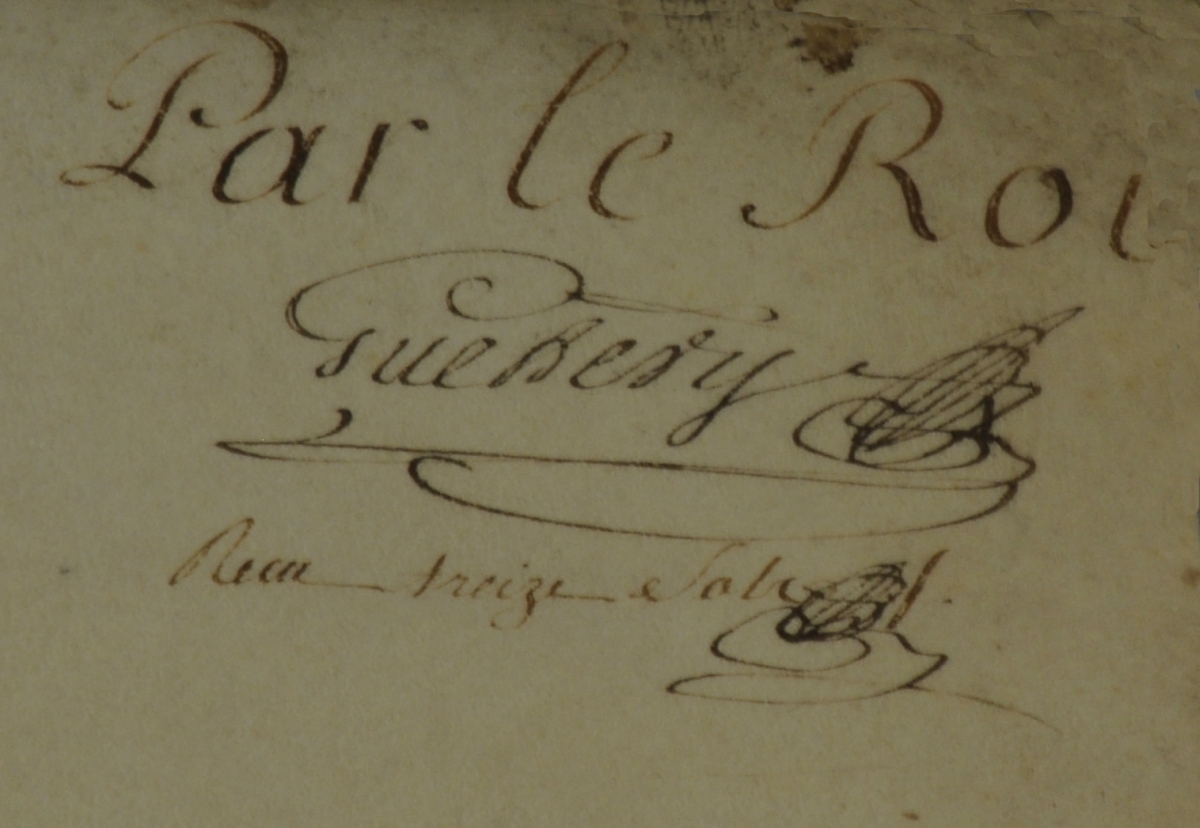 Par le Roi
Guettery
Recu treize Sols